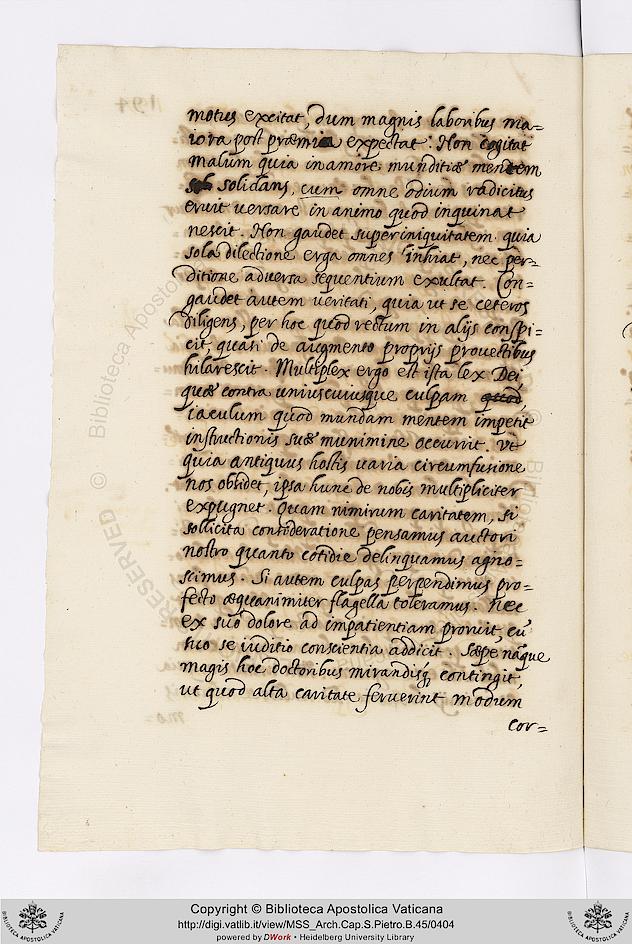 motus excitat, dum magnis laboribus ma=
iora post præmia expectat. Non cogitat
malum quia in amore munditiæ mentem
solidans, cum omne odium radicitus
eruit versare in animo quod inquinat
nescit. Non gaudet super iniquitatem. quia
sola dilectione erga omnes inhiat, nec per-
ditione adversa sequentium exultat. Con-
gaudet autem veritati, quia ut se ceteros
diligens, per hoc quod rectum in alijs conspi-
cit, quasi de augmento proprijs provectibus
hilarescit. Multiplex ergo est ista lex Dei
quæ contra uniuscuiusque culpam quod,
iaculum quod mundam mentem impetit
instructionis suæ munimine occurrit. Vt
quia antiquus hostis varia circumfusione
nos obsidet, ipsa hunc de nobis multipliciter
expugnet. Quam nimirum caritatem, si
sollicita consideratione pensamus auctori
nostro quanto cotidie delinquamus agno=
scimus. Si autem culpas perpendimus pro-
fecto æquanimiter flagella toleramus. Nec
ex suo dolore ad impatientiam proruit, cũ
suo se iuditio conscientia addicit. Sæpe nãque
magis hoc doctoribus mirandisq; contingit,
ut quod alta caritate feruerint modum
cor=
194
mo=
RESERVED © Biblioteca Aposto
© Biblio
Copyright © Biblioteca Apostolica Vaticana
http://digi.vatlib.it/view/MSS_Arch.Cap.S.Pietro.B.45/0404
powered by DWork • Heidelberg University Library